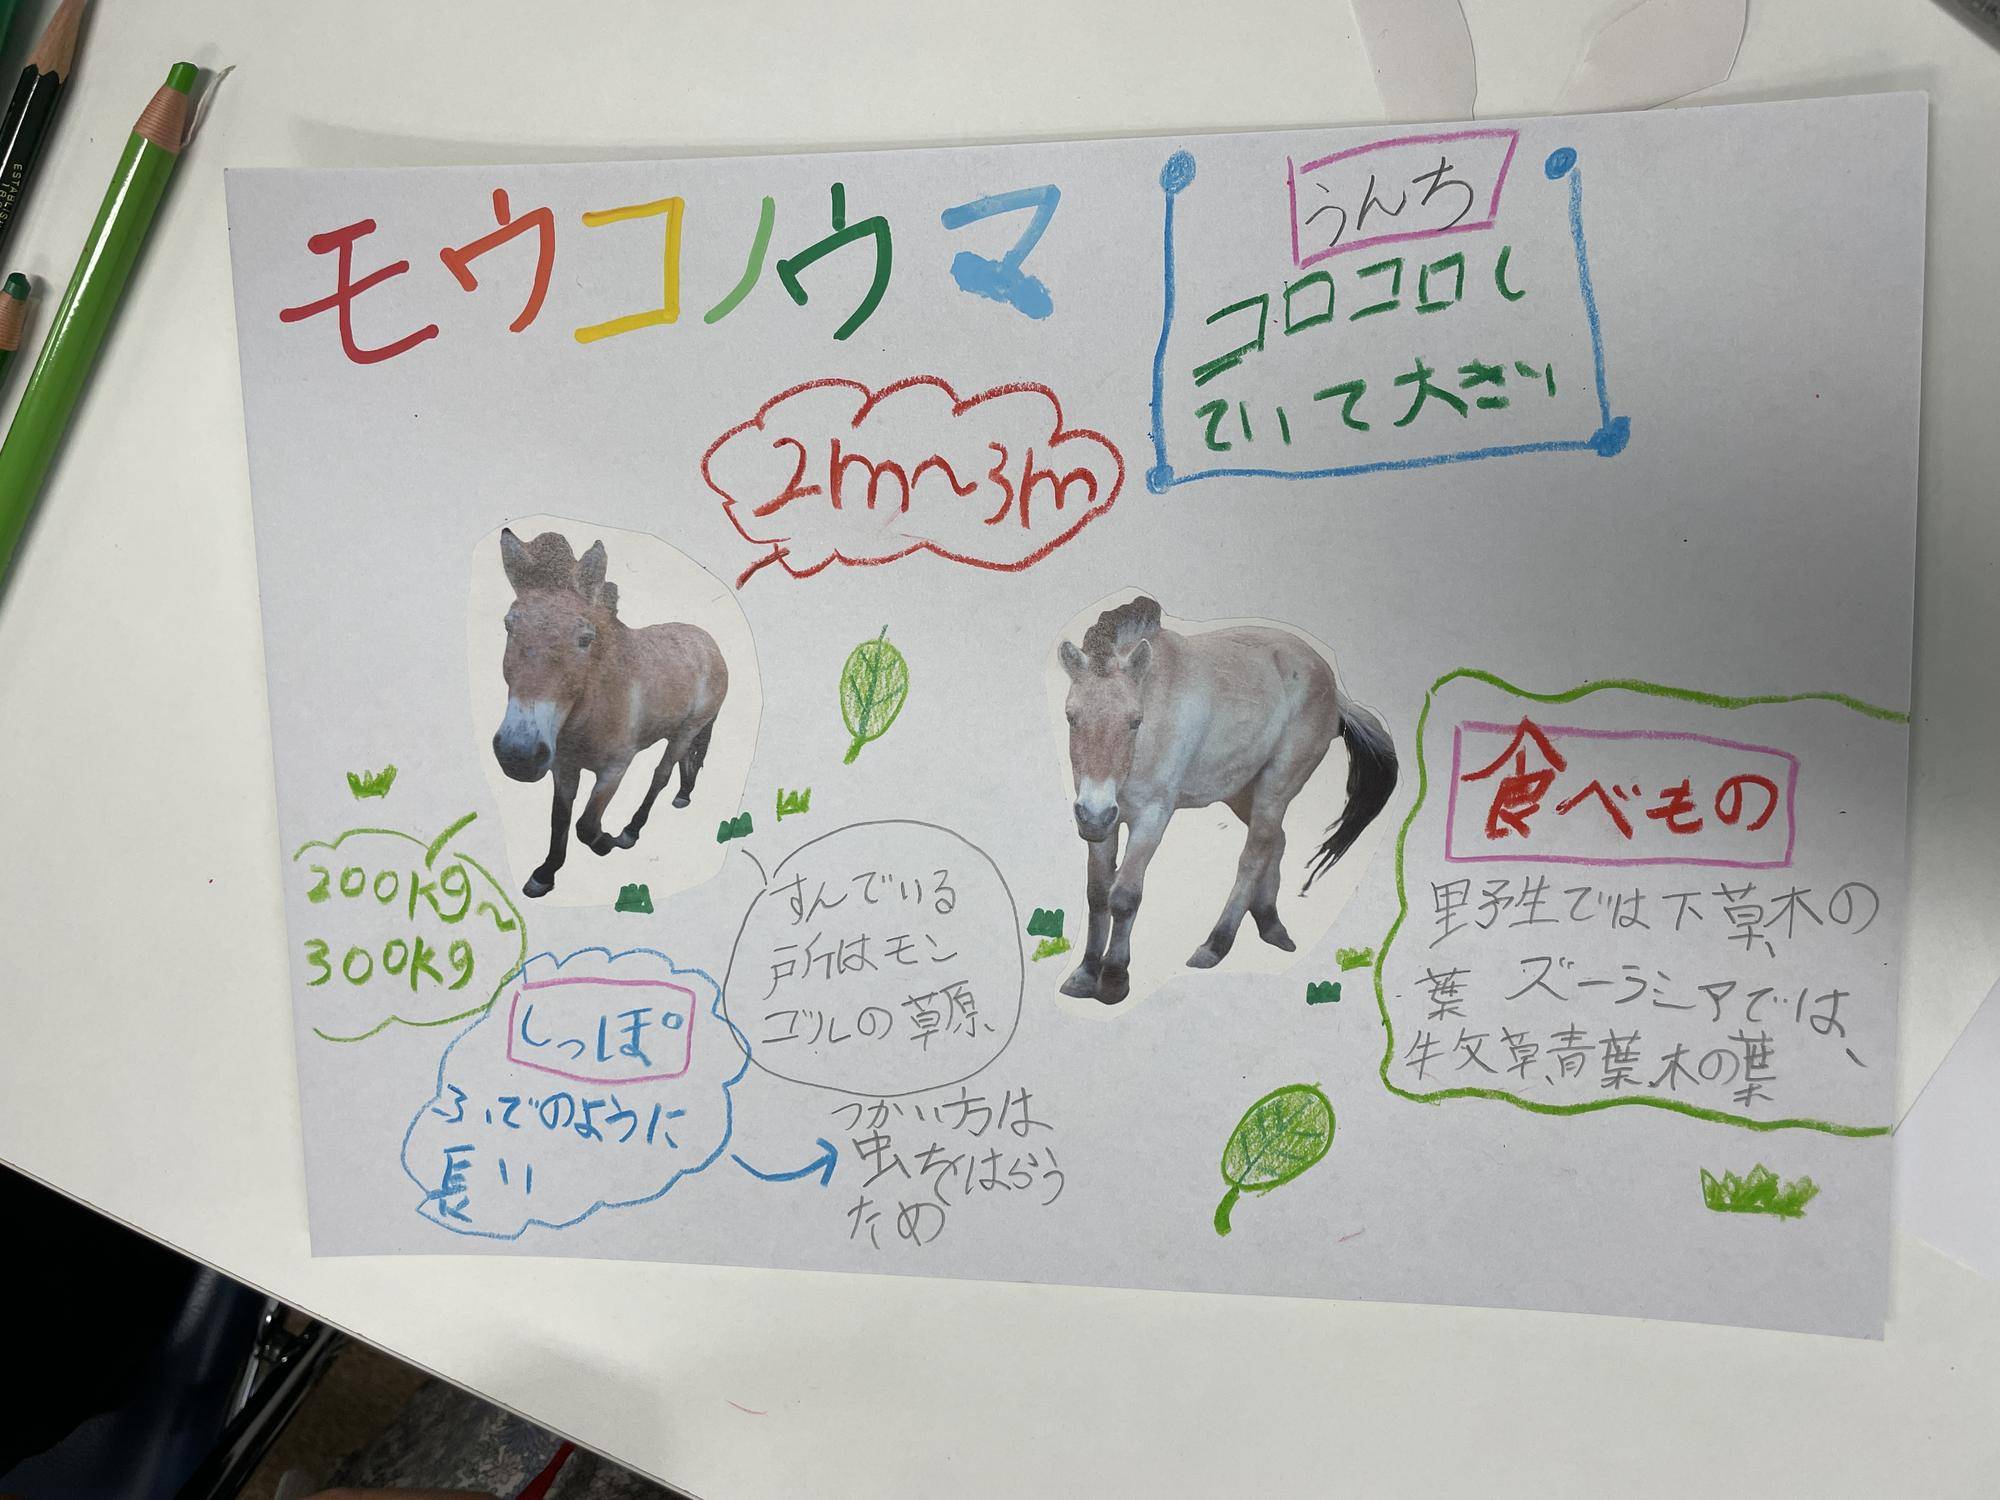 モウコノウマ
うんち
コロコロし
ていて大きい
2m〜3m
200kg〜
300kg
しっぽ
ふでのように
長い
つかい方は
虫をはらう
ため
すんでいる
戸所はモン
ゴルの草原、
食べもの
野生では下草、木の
葉 ズーラシアでは、
牛攵草、青葉、木の葉
ESTABLIS